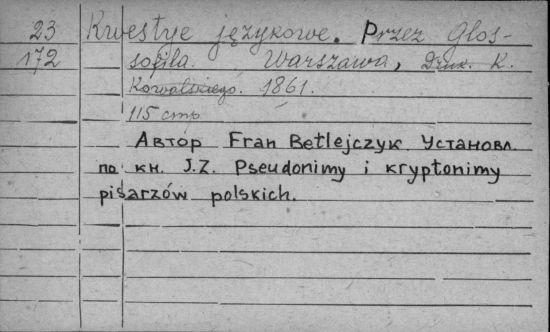 23 Kwestye językowe. Przez Glos-
172 sofila. Warszawa, Druk. K.
Kowalskiego. 1861.
115 стр
Автор Fran Betlejczyk. Установл.
по кн. J.Z. Pseudonimy i kryptonimy
pisarzów polskich.